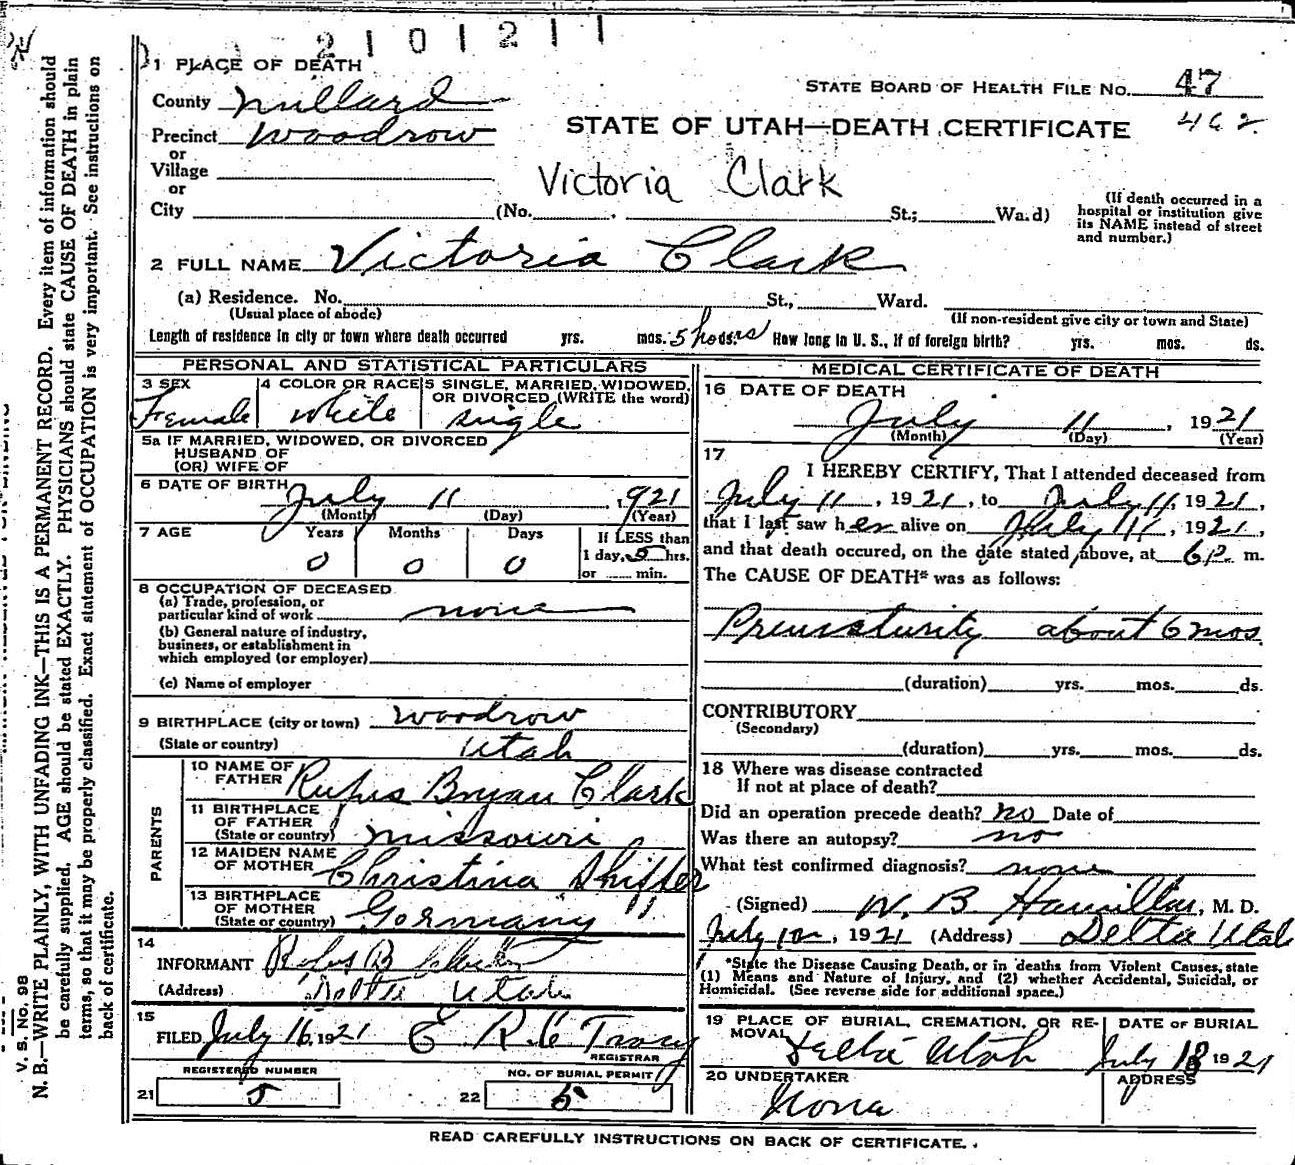 2101211
1 PLACE OF DEATH
STATE BOARD OF HEALTH FILE No. 47
County Millard
462
Precinct Woodrow
STATE OF UTAH—DEATH CERTIFICATE
or
Village
Victoria Clark
or
City (No. St.; Ward)
(If death occurred in a hospital or institution give its NAME instead of street and number.)
2 FULL NAME Victoria Clark
(a) Residence. No. St., Ward.
(Usual place of abode) (If non-resident give city or town and State)
Length of residence in city or town where death occurred yrs. mos. 5 hours ds. How long in U. S., if of foreign birth? yrs. mos. ds.
PERSONAL AND STATISTICAL PARTICULARS
3 SEX 4 COLOR OR RACE 5 SINGLE, MARRIED, WIDOWED,
OR DIVORCED (WRITE the word)
Female white single
5a IF MARRIED, WIDOWED, OR DIVORCED
HUSBAND OF
(OR) WIFE OF
6 DATE OF BIRTH July 11, 1921
(Month) (Day) (Year)
7 AGE Years Months Days If LESS than
0 0 0 1 day, 5 hrs.
or min.
8 OCCUPATION OF DECEASED
(a) Trade, profession, or
particular kind of work none
(b) General nature of industry,
business, or establishment in
which employed (or employer)
(c) Name of employer
9 BIRTHPLACE (city or town) Woodrow
(State or country) Utah
PARENTS
10 NAME OF
FATHER Rufus Bryan Clark
11 BIRTHPLACE
OF FATHER
(State or country) Missouri
12 MAIDEN NAME
OF MOTHER Christina Shiffer
13 BIRTHPLACE
OF MOTHER
(State or country) Germany
14
INFORMANT Rufus B
(Address) Delta Utah
15
FILED July 16, 1921 E R C Tracy
REGISTRAR
REGISTERED NUMBER NO. OF BURIAL PERMIT
21 5 22 5
MEDICAL CERTIFICATE OF DEATH
16 DATE OF DEATH
July 11, 1921
(Month) (Day) (Year)
17
I HEREBY CERTIFY, That I attended deceased from
July 11, 1921, to July 11, 1921,
that I last saw her alive on July 11, 1921,
and that death occured, on the date stated above, at 6 P. m.
The CAUSE OF DEATH* was as follows:
Prematurity about 6 mos.
(duration) yrs. mos. ds.
CONTRIBUTORY
(Secondary)
(duration) yrs. mos. ds.
18 Where was disease contracted
If not at place of death?
Did an operation precede death? no Date of
Was there an autopsy? no
What test confirmed diagnosis? none
(Signed) W. B. Hamilton, M. D.
July, 1921 (Address) Delta Utah
*State the Disease Causing Death, or in deaths from Violent Causes, state
(1) Means and Nature of Injury, and (2) whether Accidental, Suicidal, or
Homicidal. (See reverse side for additional space.)
19 PLACE OF BURIAL, CREMATION, OR RE- DATE OF BURIAL
MOVAL Delta Utah July 1921
20 UNDERTAKER ADDRESS
None
READ CAREFULLY INSTRUCTIONS ON BACK OF CERTIFICATE.
V. S. No. 98
N. B.—WRITE PLAINLY, WITH UNFADING INK—THIS IS A PERMANENT RECORD. Every item of information should
be carefully supplied. AGE should be stated EXACTLY. PHYSICIANS should state CAUSE OF DEATH in plain
terms, so that it may be properly classified. Exact statement of OCCUPATION is very important. See instructions on
back of certificate.